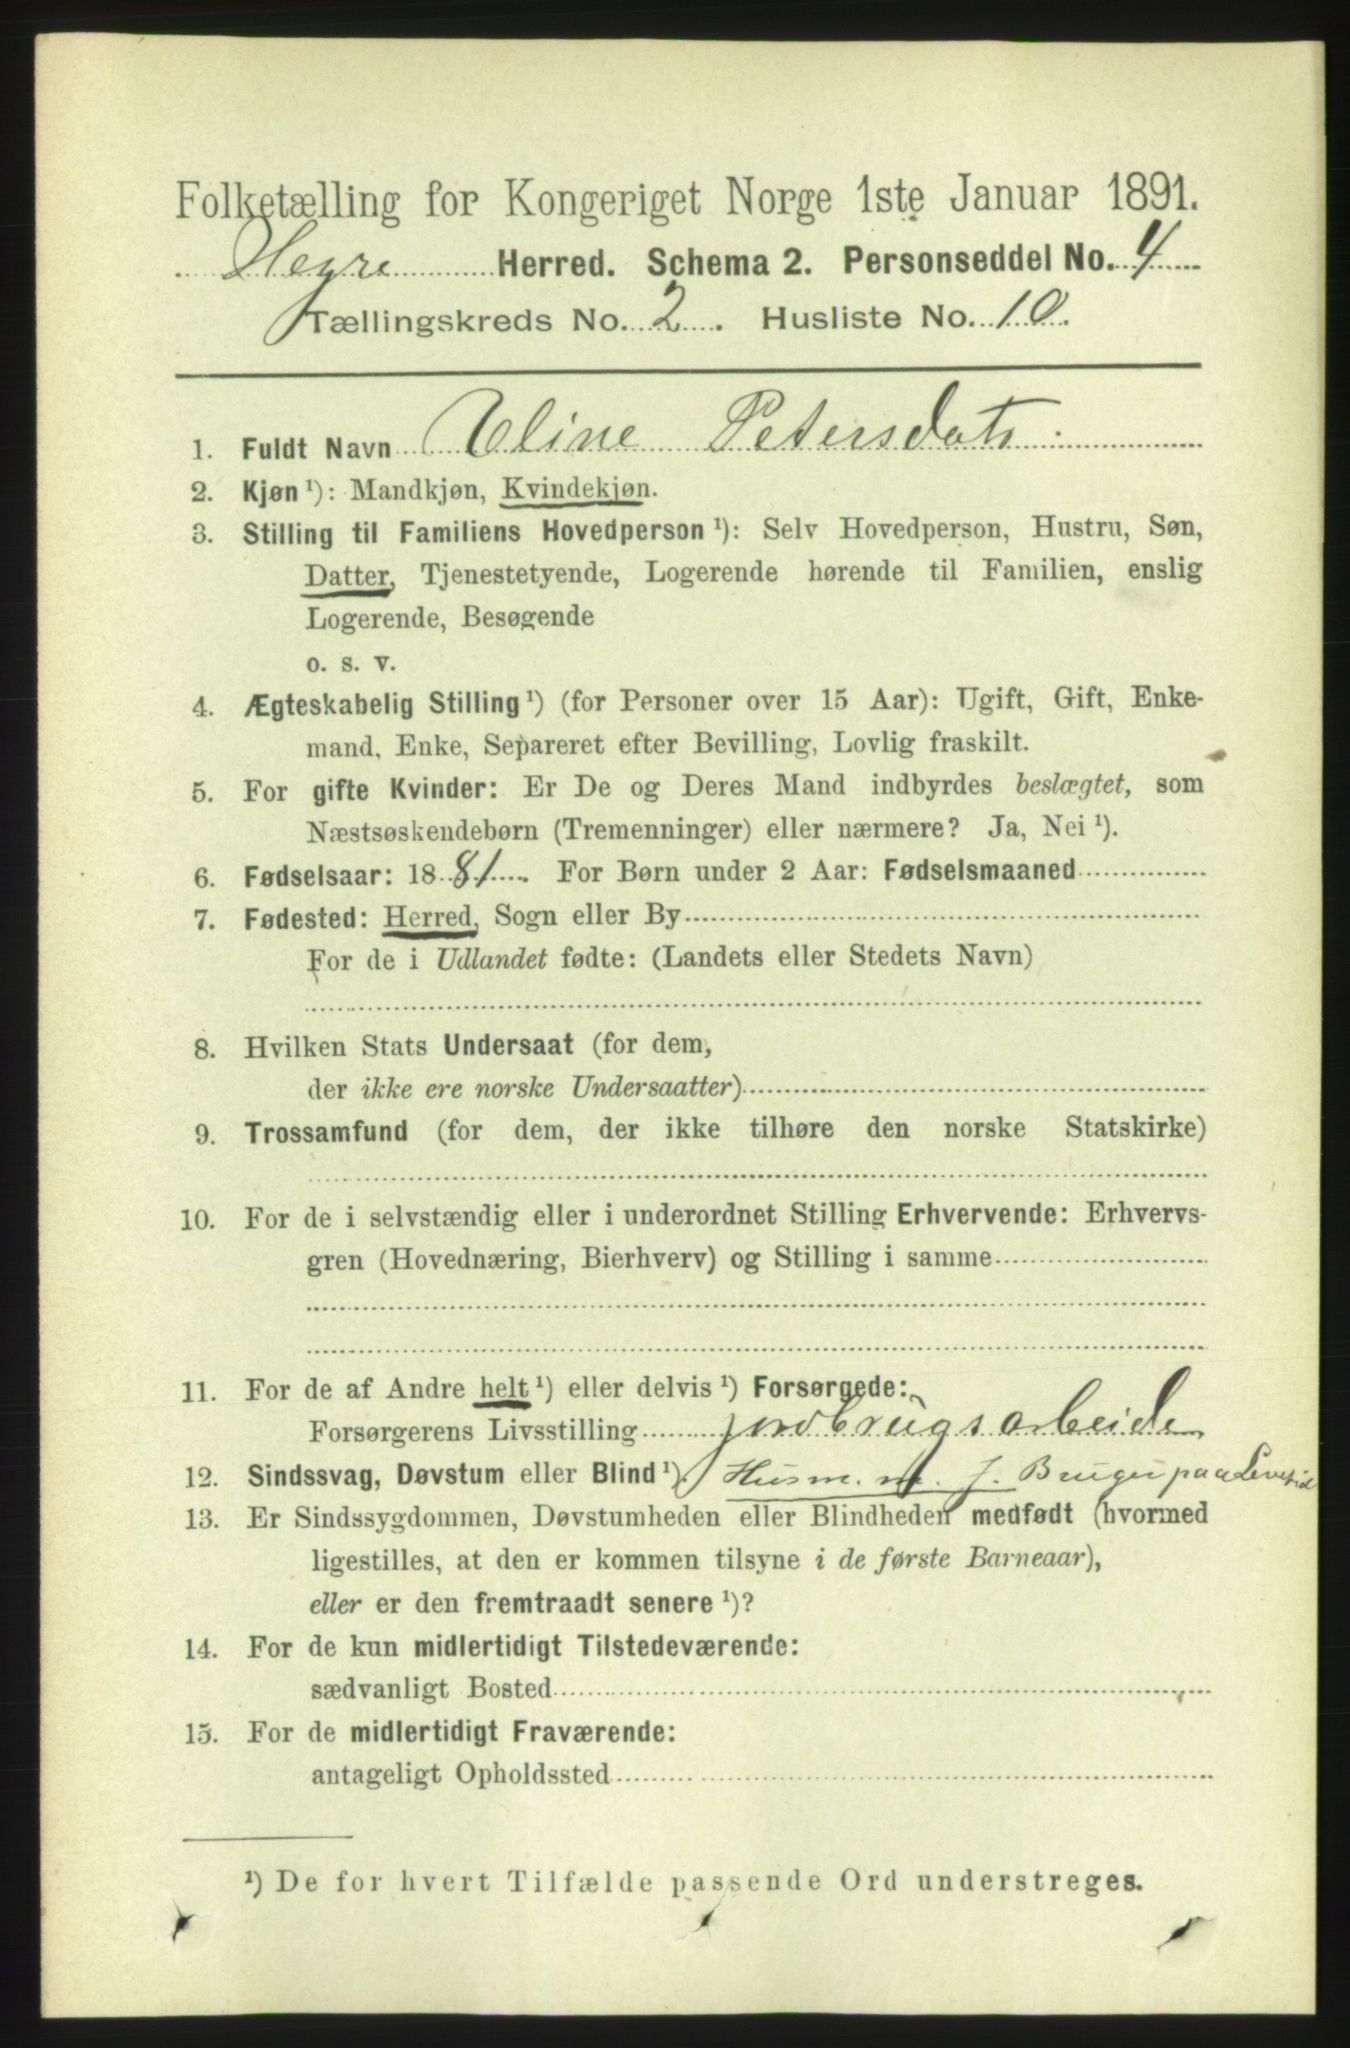 Folketælling for Kongeriget Norge 1ste Januar 1891.
Hegre Herred. Schema 2. Personseddel No. 4
Tællingskreds No. 2. Husliste No. 10.
1. Fuldt Navn Eline Petersdatr
2. Kjøn ¹): Mandkjøn, Kvindekjøn.
3. Stilling til Familiens Hovedperson ¹): Selv Hovedperson, Hustru, Søn,
Datter, Tjenestetyende, Logerende hørende til Familien, enslig
Logerende, Besøgende
o. s. v.
4. Ægteskabelig Stilling ¹) (for Personer over 15 Aar): Ugift, Gift, Enke-
mand, Enke, Separeret efter Bevilling, Lovlig fraskilt.
5. For gifte Kvinder: Er De og Deres Mand indbyrdes beslægtet, som
Næstsøskendebørn (Tremenninger) eller nærmere? Ja, Nei ¹).
6. Fødselsaar: 1881. For Børn under 2 Aar: Fødselsmaaned
7. Fødested: Herred, Sogn eller By
For de i Udlandet fødte: (Landets eller Stedets Navn)
8. Hvilken Stats Undersaat (for dem,
der ikke ere norske Undersaatter)
9. Trossamfund (for dem, der ikke tilhøre den norske Statskirke)
10. For de i selvstændig eller i underordnet Stilling Erhvervende: Erhvervs-
gren (Hovednæring, Bierhverv) og Stilling i samme
11. For de af Andre helt ¹) eller delvis ¹) Forsørgede:
Forsørgerens Livsstilling jordbrugsarbeide
12. Sindssvag, Døvstum eller Blind ¹). Husm. m. J. Bruger paa Levetid
13. Er Sindssygdommen, Døvstumheden eller Blindheden medfødt (hvormed
ligestilles, at den er kommen tilsyne i de første Barneaar),
eller er den fremtraadt senere ¹)?
14. For de kun midlertidigt Tilstedeværende:
sædvanligt Bosted
15. For de midlertidigt Fraværende:
antageligt Opholdssted
¹) De for hvert Tilfælde passende Ord understreges.